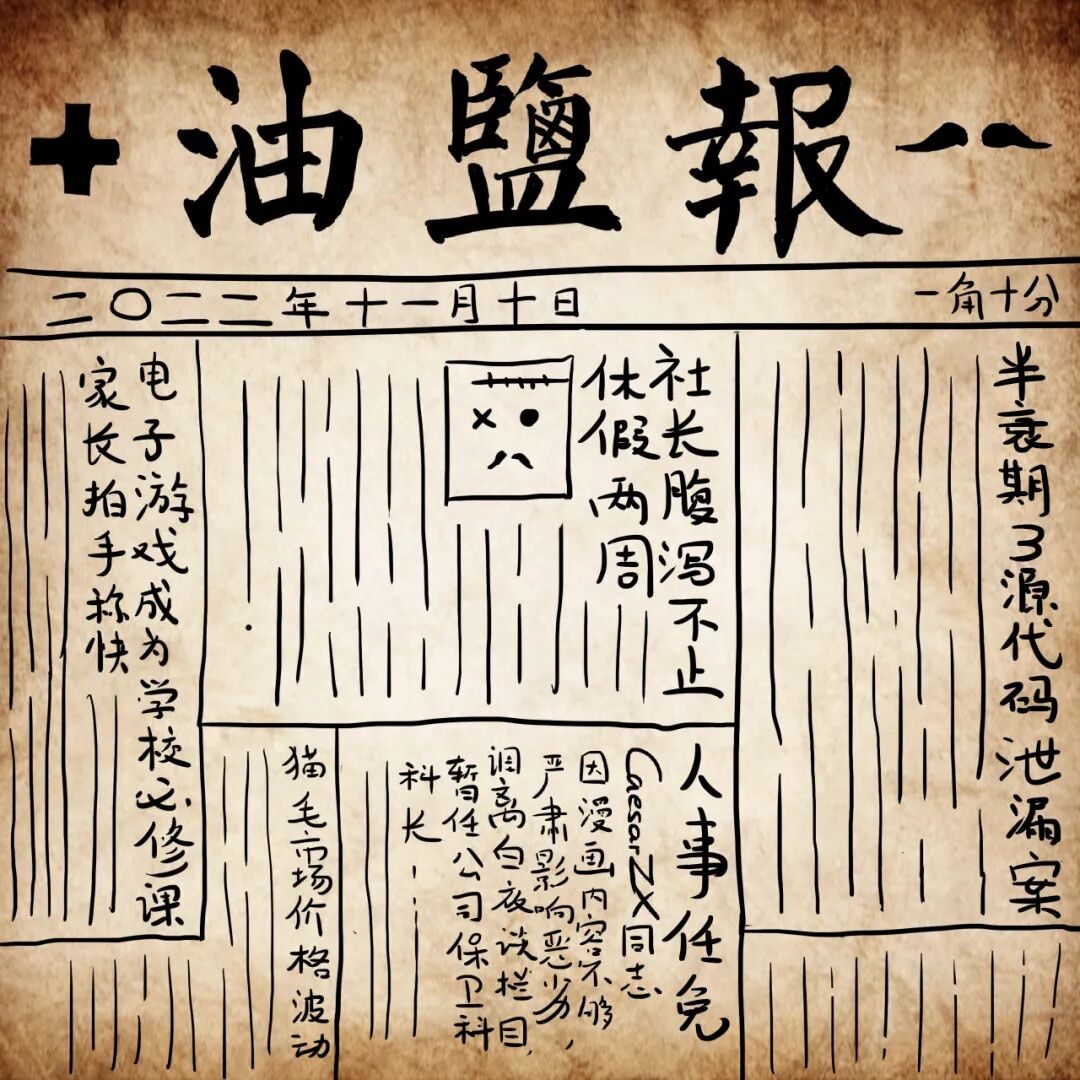 油鹽報
二〇二二年十一月十日
一角十分
半衰期3源代码泄漏案
社长腹泻不止
休假两周
电子游戏成为学校必修课
家长拍手称快
人事任免
CaesarZX同志
因漫画内容不够
严肃影响恶劣,
调离白夜谈栏目,
暂任公司保卫科
科长
猫毛市场价格波动